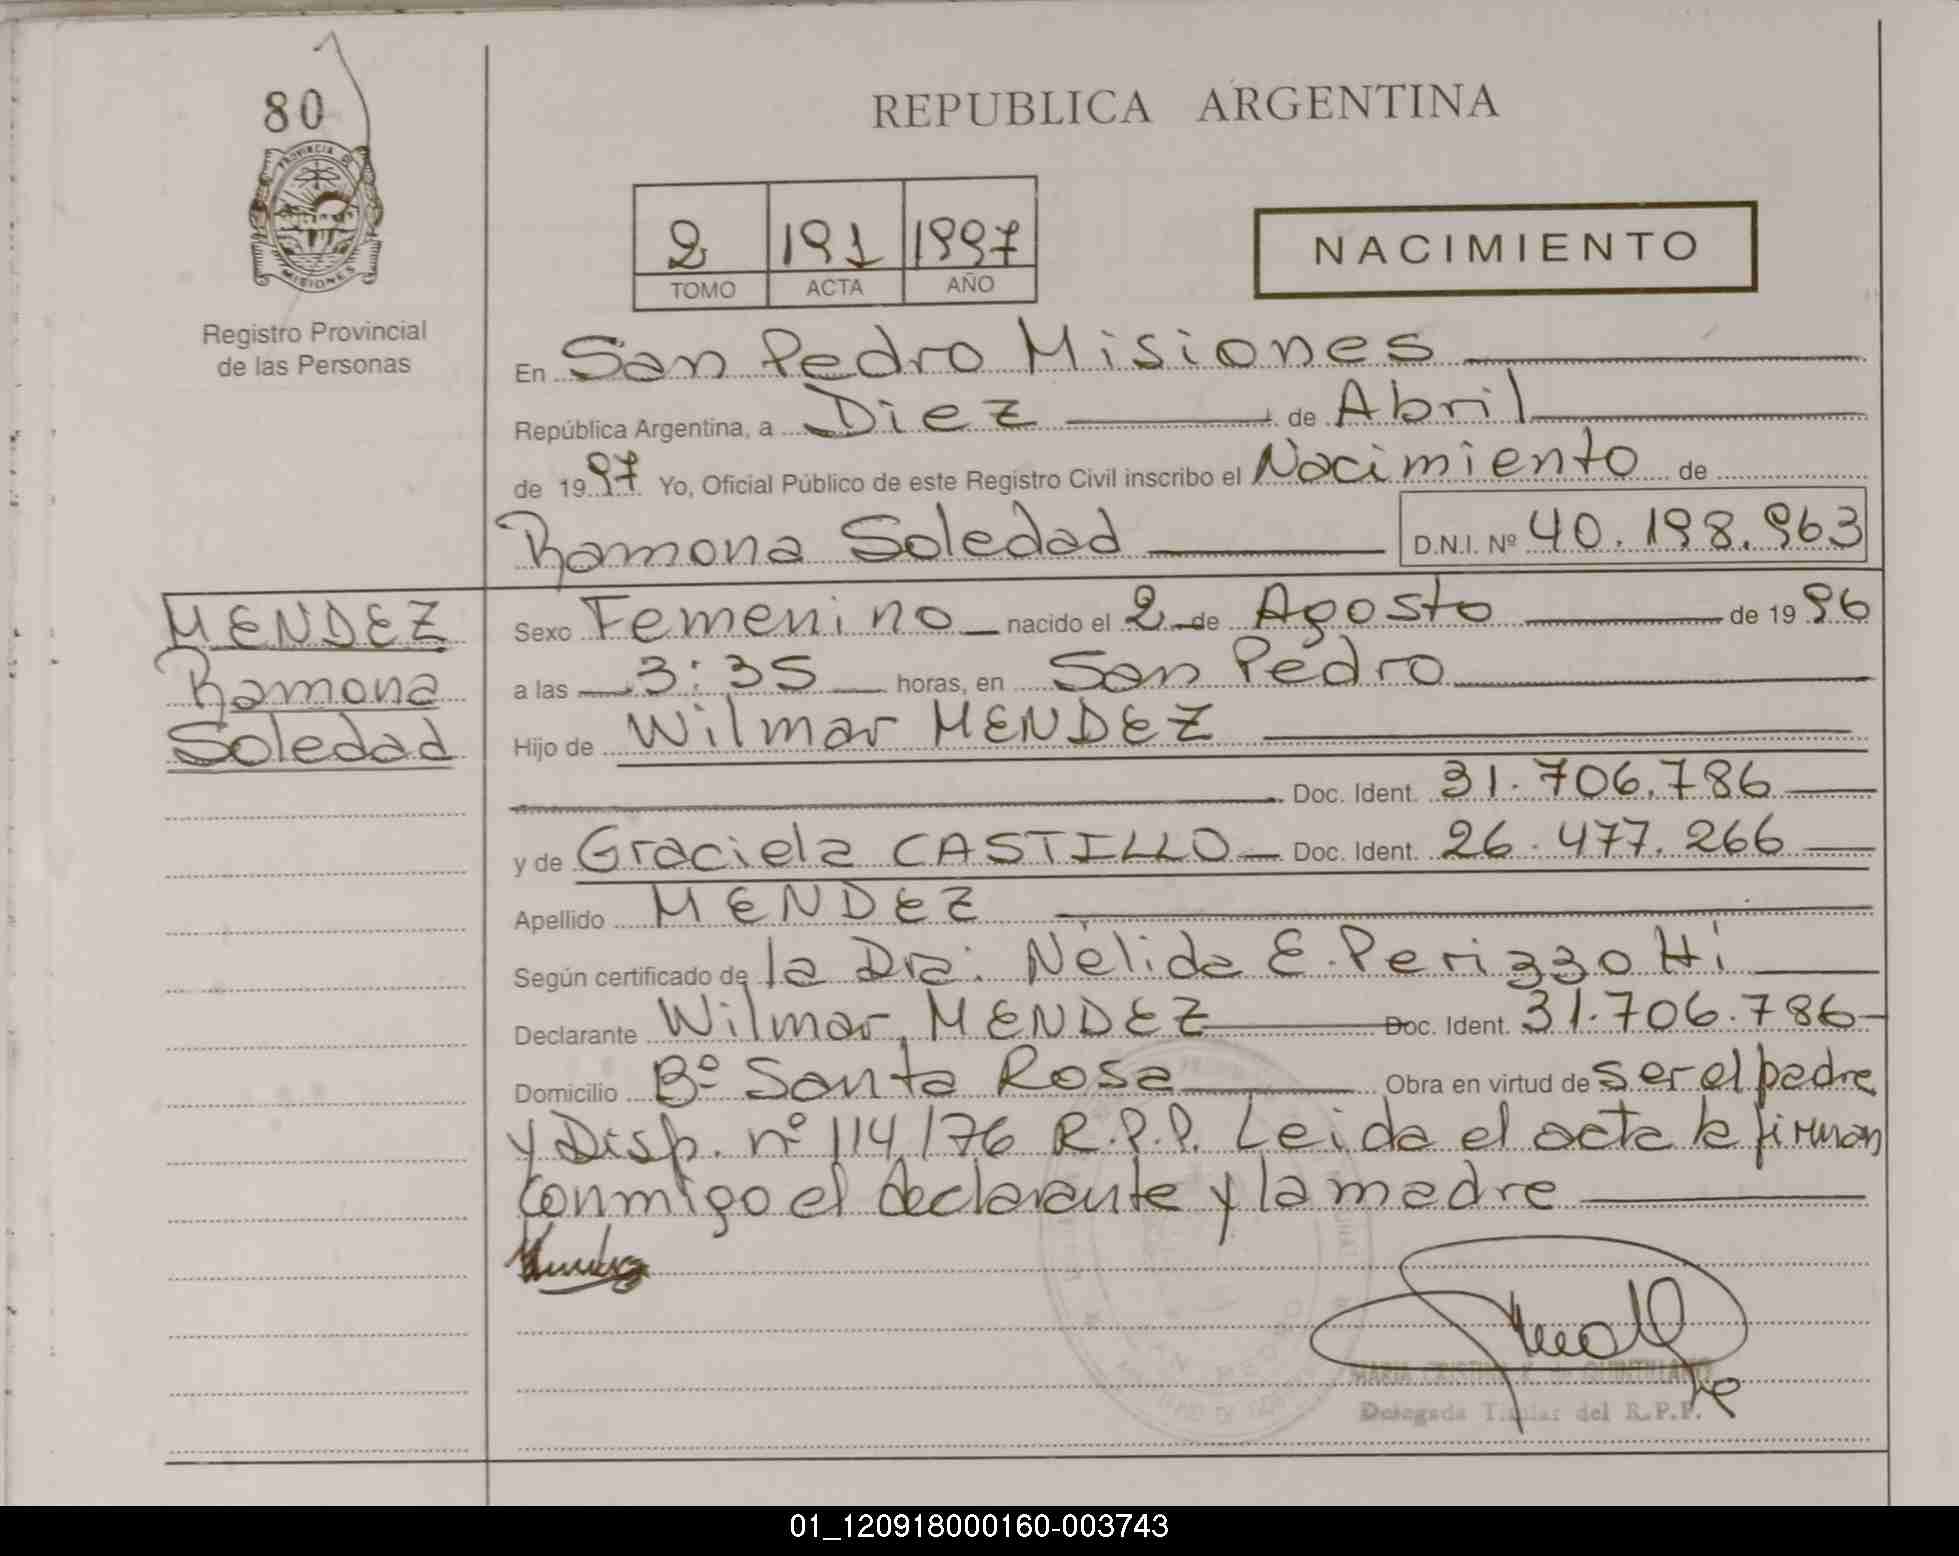 80
PROVINCIA DE
MISIONES
Registro Provincial
de las Personas
REPUBLICA ARGENTINA
2 191 1997
TOMO ACTA AÑO
NACIMIENTO
En San Pedro Misiones
República Argentina, a Diez de Abril
de 1997 Yo, Oficial Público de este Registro Civil inscribo el Nacimiento de
Ramona Soledad D.N.I. Nº 40.198.963
MENDEZ
Ramona
Soledad
Sexo Femenino nacido el 2 de Agosto de 1996
a las 3:35 horas, en San Pedro
Hijo de Wilmar MENDEZ
Doc. Ident. 31.706.786
y de Graciela CASTILLO Doc. Ident. 26.477.266
Apellido MENDEZ
Según certificado de la Dra. Nélida E. Perizzo Hi
Declarante Wilmar MENDEZ Doc. Ident. 31.706.786
Domicilio Bº Santa Rosa Obra en virtud de ser el padre
y Disp. nº 114/76 R.P.P. Leida el acta la firman
conmigo el declarante y la madre
MARIA CRISTINA de QUINTILLANO
Delegada Titular del R.P.P.
01_120918000160-003743